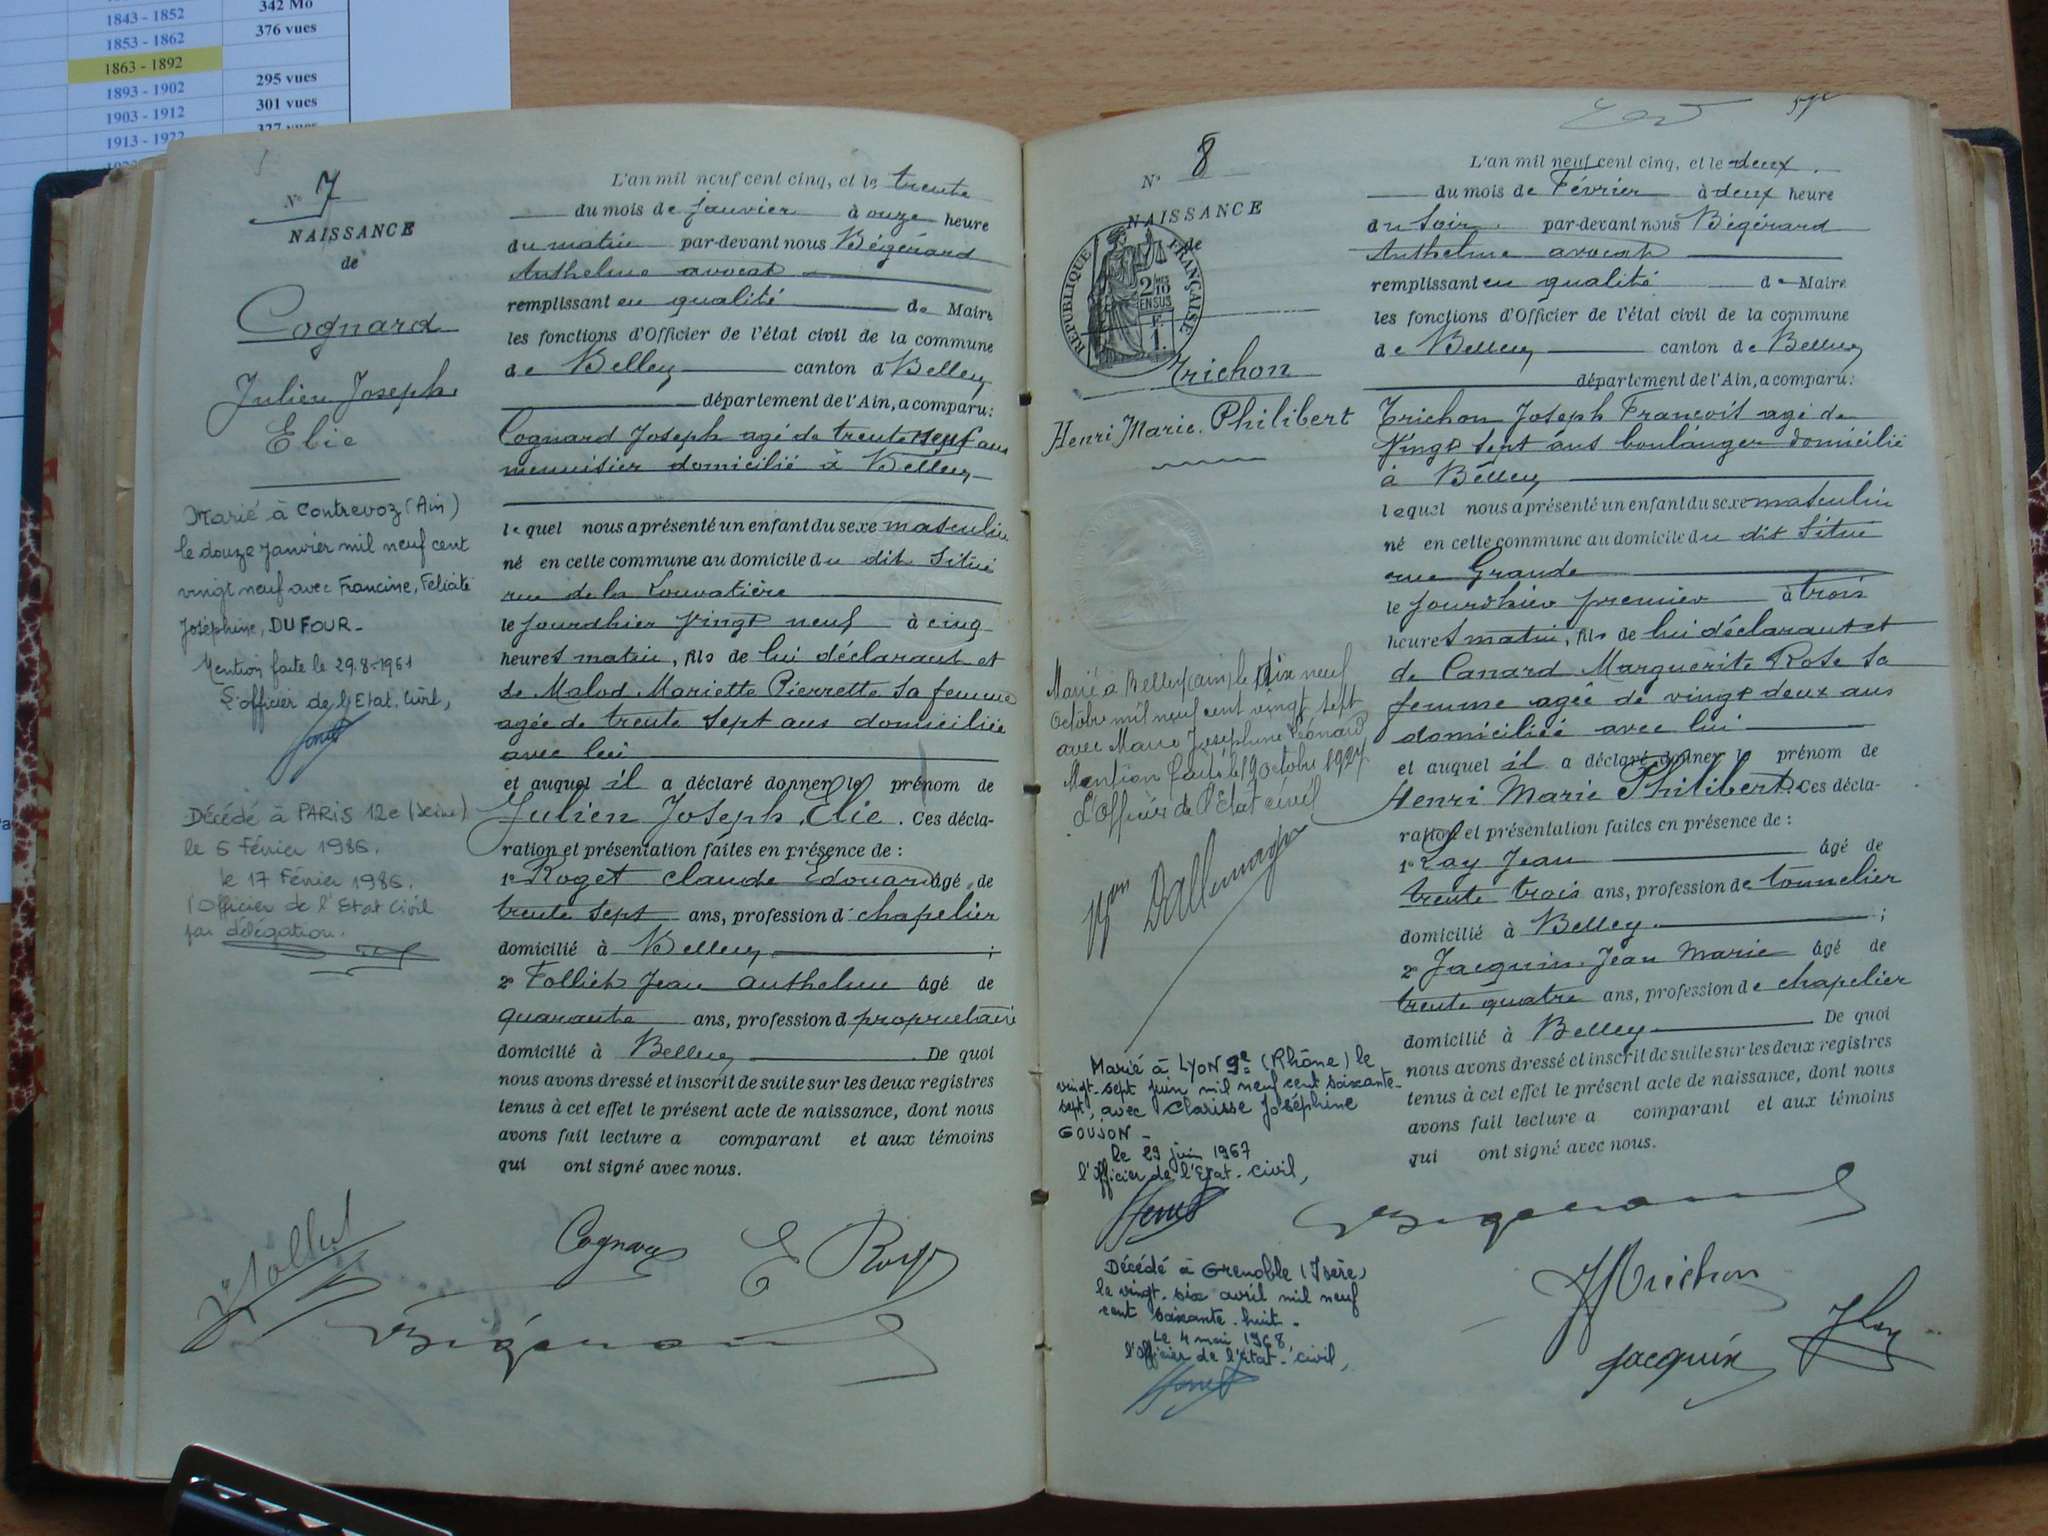 342 Mo
1843 - 1852
376 vues
1853 - 1862
1863 - 1892
295 vues
1893 - 1902
301 vues
1903 - 1912
327 vues
1913 - 1922
N° 7
NAISSANCE
de
Cognard
Julien Joseph
Elie
Marié à Contrevoz (Ain)
le douze Janvier mil neuf cent
vingt neuf avec Francine, Félicité
Joséphine, DUFOUR_
Mention faite le 29.8.1961
L'officier de l'Etat. Civil,
Décédé à PARIS 12e (Seine)
le 6 Février 1986.
le 17 Février 1986.
l'Officier de l'Etat Civil
par délégation.
L'an mil neuf cent cinq, et le trente
du mois de janvier à onze heure
du matin par-devant nous Bégérard
Anthelme avocat
remplissant en qualité de Maire
les fonctions d'Officier de l'état civil de la commune
de Belley canton d Belley
département de l'Ain, a comparu:
Cognard Joseph agé de trente neuf ans
menuisier domicilié à Belley
lequel nous a présenté un enfant du sexe masculin
né en cette commune au domicile du dit Situé
rue de la
le jourdhier vingt neuf à cinq
heures matin, fils de lui déclarant et
de Malod Mariette Pierrette sa femme
agée de trente sept ans domiciliée
avec lui
et auquel il a déclaré donner les prénom de
Julien Joseph Elie. Ces décla-
ration et présentation faites en présence de :
1° Roget Claude Edouard âgé de
trente sept ans, profession d chapelier
domicilié à Belley ;
2° Folliet Jean Anthelme âgé de
quarante ans, profession d propriétaire
domicilié à Belley. De quoi
nous avons dressé et inscrit de suite sur les deux registres
tenus à cet effet le présent acte de naissance, dont nous
avons fait lecture a comparant et aux témoins
qui ont signé avec nous.
Cognard
N° 8
NAISSANCE
de
RÉPUBLIQUE FRANÇAISE
2/10
EN SUS
1
Trichon
Henri Marie Philibert
Marié à Belley (ain) le dix neuf
octobre mil neuf cent vingt sept
avec Marie Joséphine Léonard
Mention faite le 19 octobre 1927
L'Officier de l'Etat civil
Marié à LYON 9e (Rhône) le
vingt-sept juin mil neuf cent soixante-
sept, avec Clarisse Joséphine
GOUJON_
le 29 juin 1967
l'Officier de l'Etat-civil,
Décédé à Grenoble (Isère)
le vingt-six avril mil neuf
cent soixante-huit.
Le 4 mai 1968,
l'Officier de l'Etat-civil,
L'an mil neuf cent cinq, et le deux
du mois de Février à deux heure
du soir par-devant nous Bégérard
Anthelme avocat
remplissant en qualité de Maire
les fonctions d'Officier de l'état civil de la commune
de Belley canton de Belley
département de l'Ain, a comparu:
Trichon Joseph François agé de
Vingt sept ans boulanger domicilié
à Belley
lequel nous a présenté un enfant du sexe masculin
né en cette commune au domicile du dit Situé
rue Grande
le jourdhier premier à trois
heures matin, fils de lui déclarant et
de Canard Marguerite Rose sa
femme agée de vingt deux ans
domiciliée avec lui
et auquel il a déclaré donner le prénom de
Henri Marie Philibert. Ces décla-
ration et présentation faites en présence de :
1° Ray Jean âgé de
trente trois ans, profession de tonnelier
domicilié à Belley ;
2° Jacquin Jean Marie âgé de
trente quatre ans, profession de chapelier
domicilié à Belley De quoi
nous avons dressé et inscrit de suite sur les deux registres
tenus à cet effet le présent acte de naissance, dont nous
avons fait lecture a comparant et aux témoins
qui ont signé avec nous.
Trichon
Jacquin